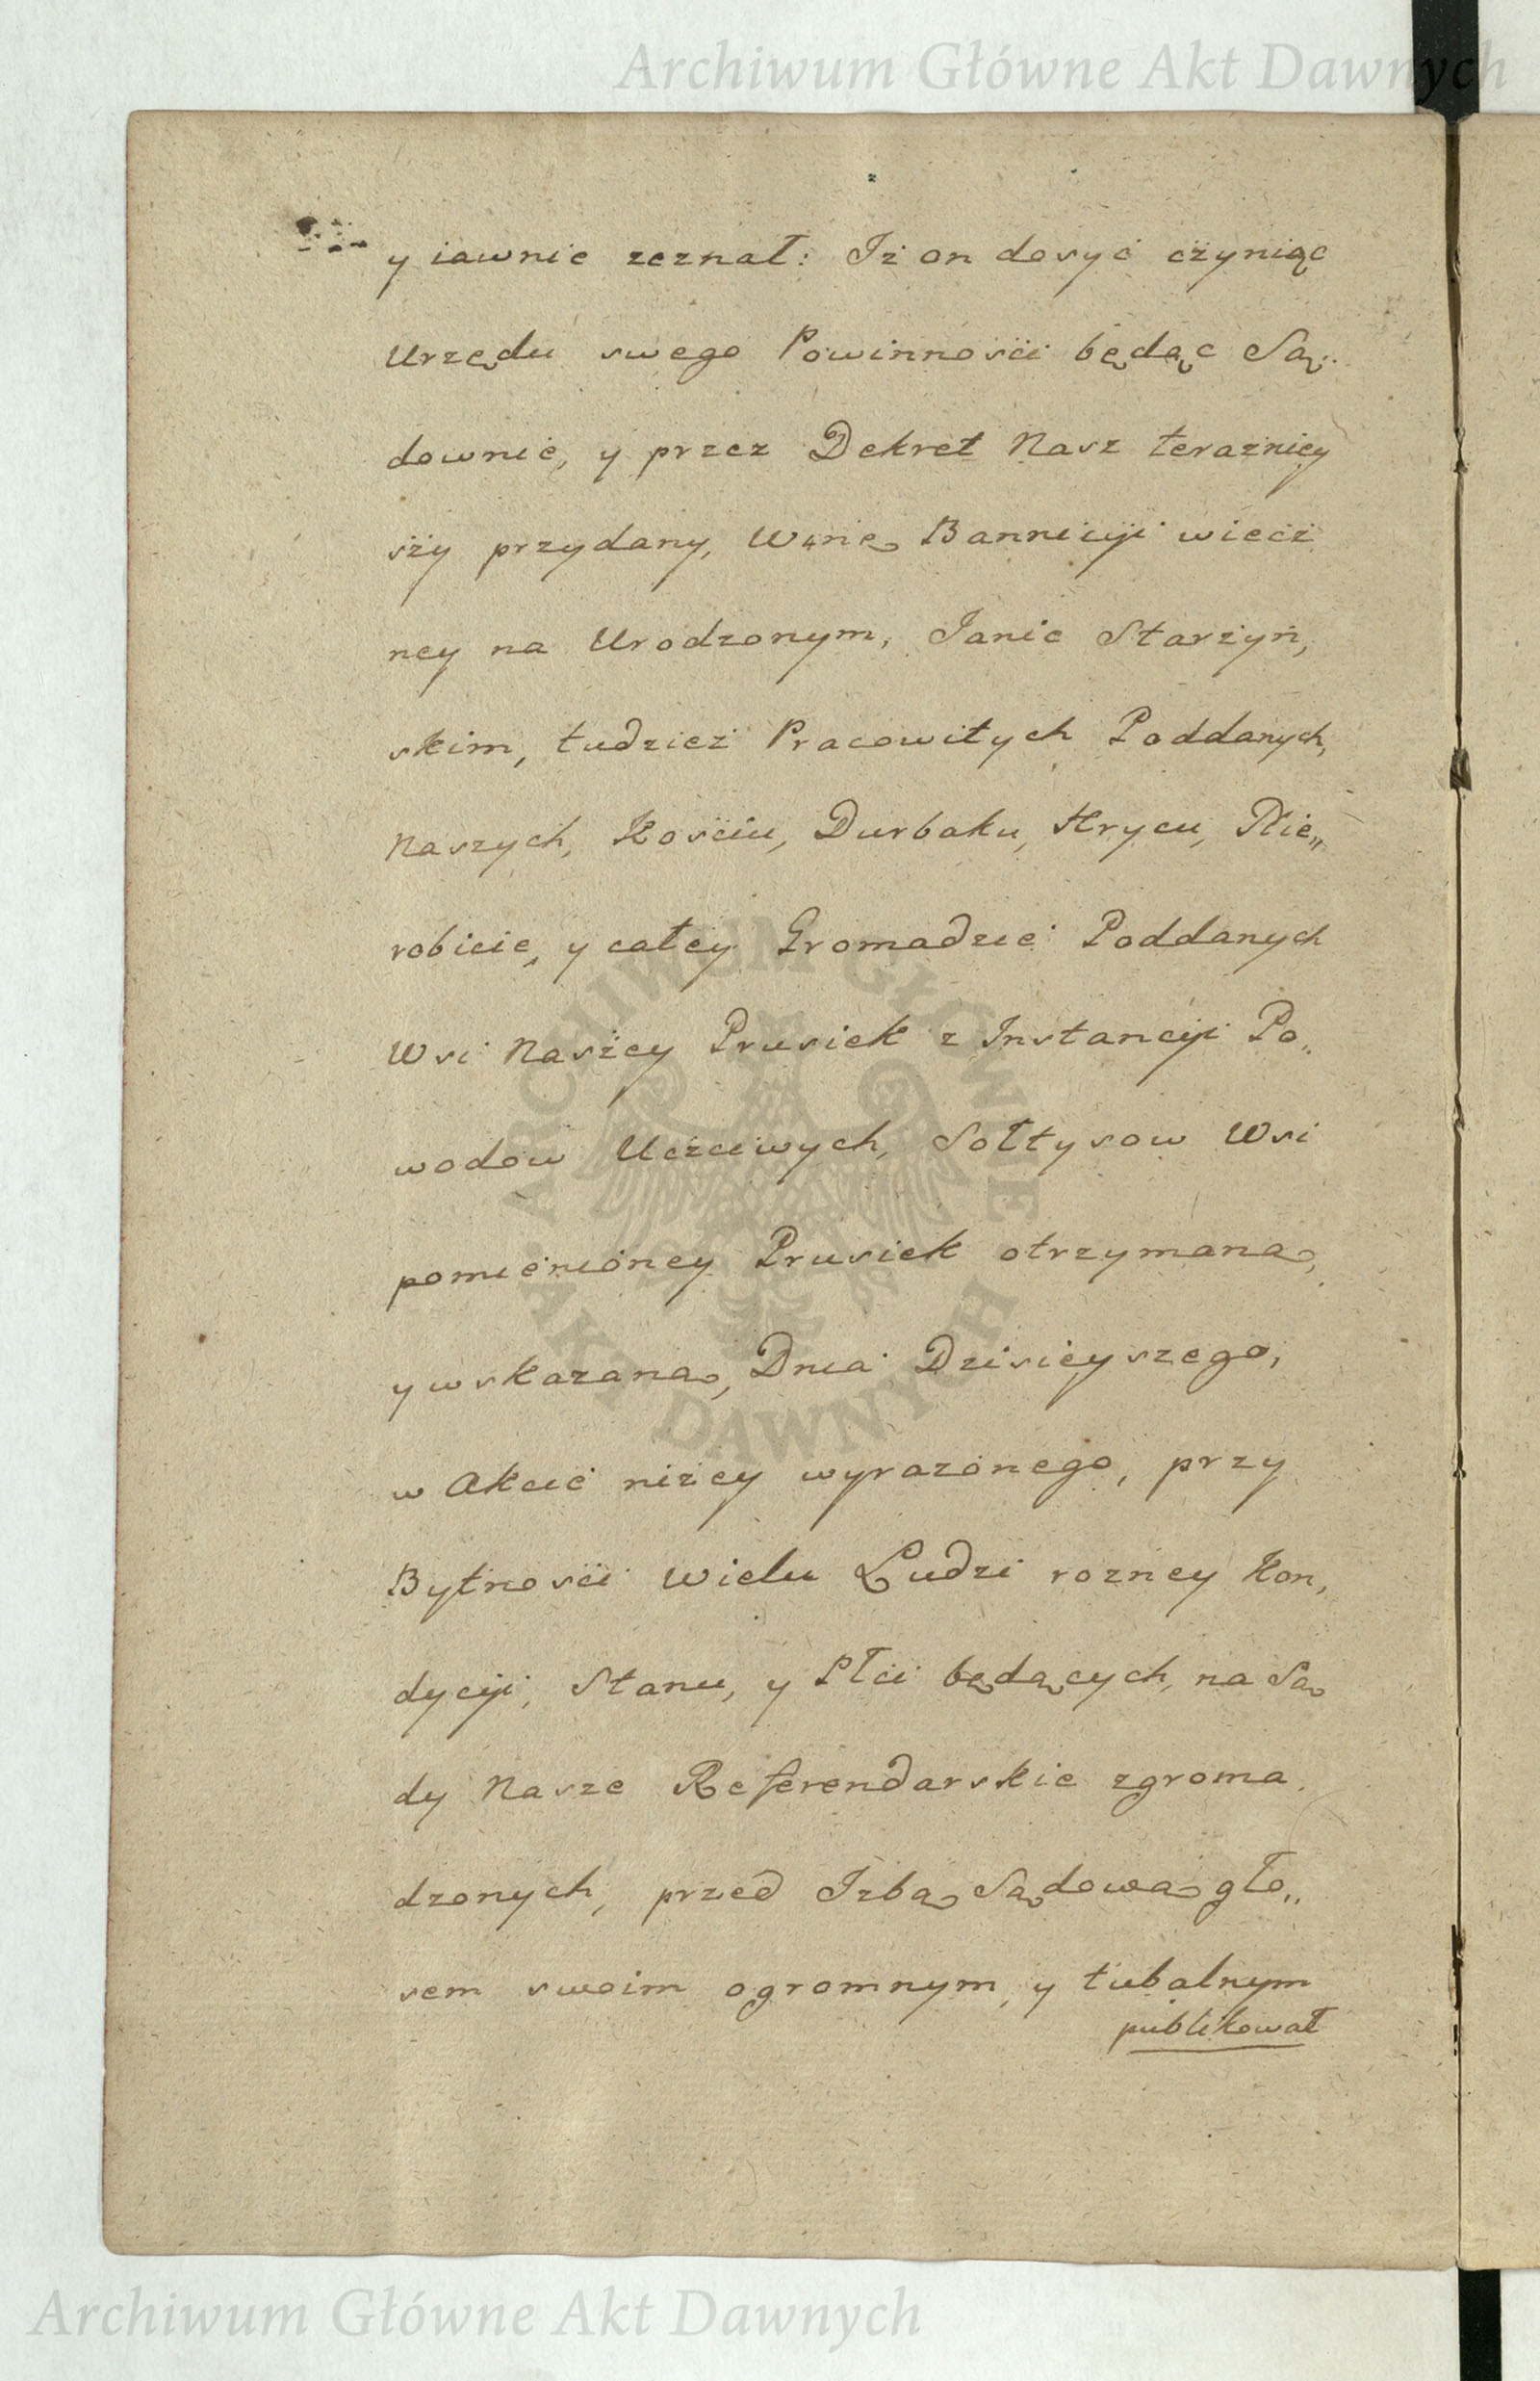 Archiwum Główne Akt Dawnych
y iawnie zeznał: Iż on dosyć czyniąc
Urzędu swego Powinności będąc Są..
downie, y przez Dekret Nasz teraznięy
szy przydany, Winę Bannicyi wiecz
ney na Urodzonym, Ianie Starzyń,
skim, tudzież Pracowitych Poddanych,
Naszych, Kościu, Durbaku, Hrycu, Nie„
robicie, y całey Gromadzie Poddanych
Wsi Naszey Prusiek z Instancyi Po„
wodow Uczciwych, Sołtysow Wsi
pomienioney Prusiek otrzymaną,
y wskazaną, Dnia Dzisieyszego,
w Akcie niżey wyrażonego, przy
Bytności Wielu Ludzi rozney Kon,
dycyi, Stanu, y Płci będących, na Są
dy Nasze Referendarskie zgroma.
dzonych, przed Izbą Sądową gło„
sem swoim ogromnym, y tubalnym
publikował
ARCHIWUM GŁÓWNE
AKT DAWNYCH
Archiwum Główne Akt Dawnych